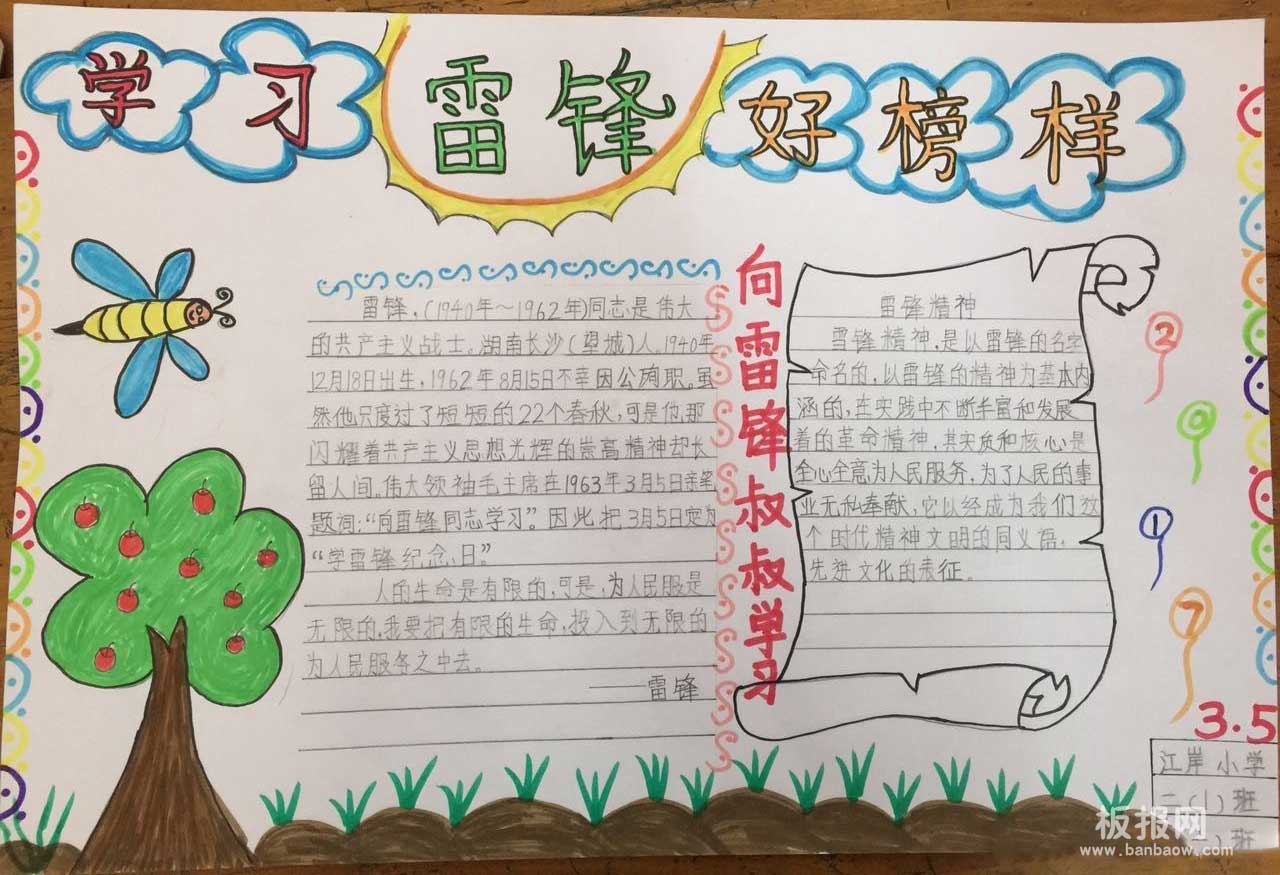 学习雷锋好榜样
雷锋,(1940年～1962年)同志是伟大
的共产主义战士。湖南长沙(望城)人,1940年
12月18日出生,1962年8月15日不幸因公殉职。虽
然他只度过了短短的22个春秋,可是他,那
闪耀着共产主义思想光辉的崇高精神却长
留人间。伟大领袖毛主席在1963年3月5日亲笔
题词:“向雷锋同志学习”。因此把3月5日定为
“学雷锋纪念日”
人的生命是有限的,可是,为人民服是
无限的,我要把有限的生命,投入到无限的
为人民服务之中去。
——雷锋
向雷锋叔叔学习
雷锋精神
雷锋精神,是以雷锋的名字
命名的,以雷锋的精神为基本内
涵的,在实践中不断丰富和发展
着的革命精神,其实质和核心是
全心全意为人民服务,为了人民的事
业无私奉献,它以经成为我们这
个时代精神文明的同义语,
先进文化的表征。
2
0
1
7
3.5
江岸小学
二(1)班
班
板报网
www.banbaow.com